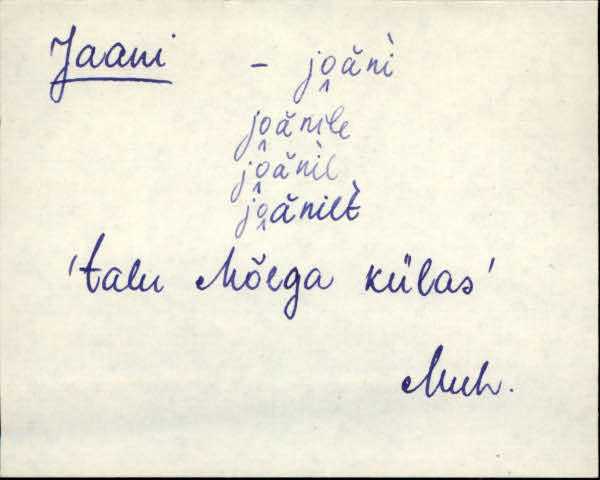 Jaani - jo̭ăǹi
jo̭ănile
jo̭ănìl
jo̭ănilt̀
'talu Mõega külas'
Muh.